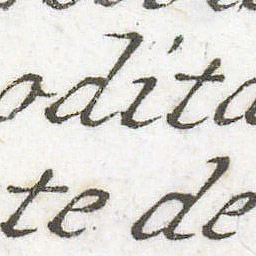 odita
te de